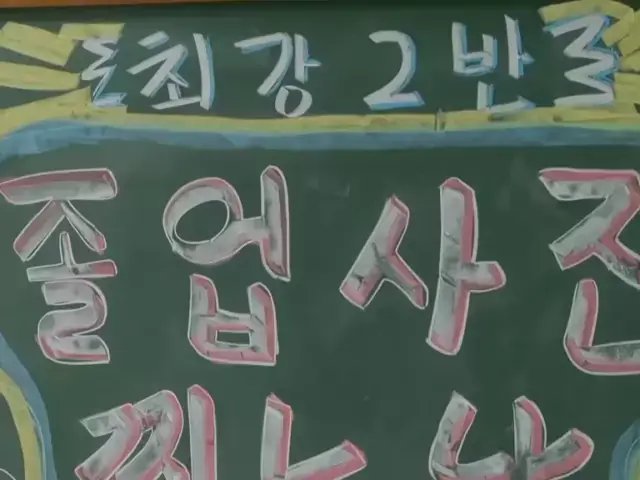 최강 2반
졸업사진